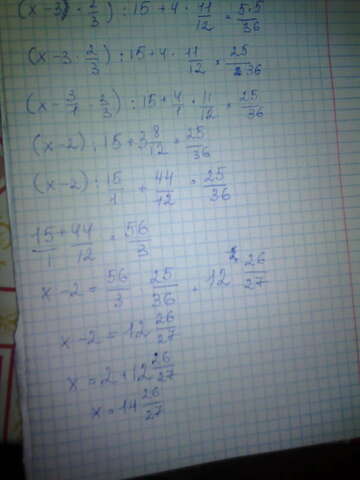 (x-3)·2/3) : 15+4·11/12=5·5/36
(x-3·2/3) : 15+4·11/12=25/36
(x-3/1·2/3) : 15+4/1·11/12=25/36
(x-2) : 15+3 8/12=25/36
(x-2) : 15/1+44/12=25/36
15/1+44/12=56/3
x-2=56/3·25/36=12 26/27
x-2=12 26/27
x=2+12 26/27
x=14 26/27